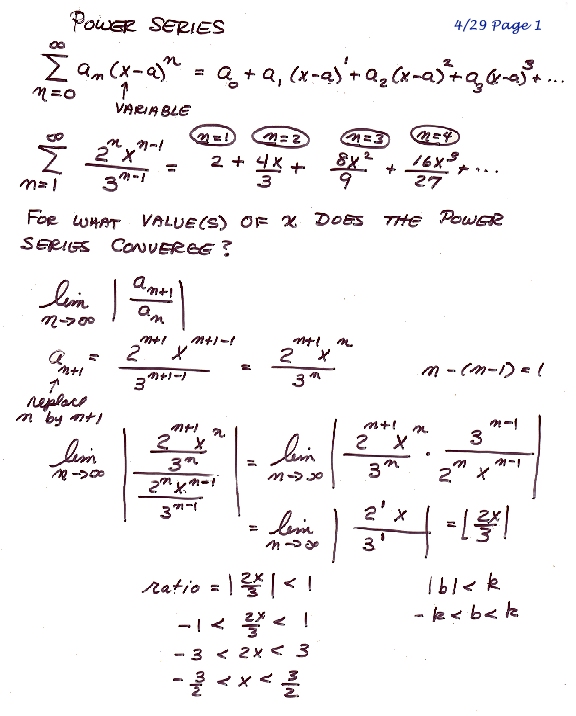 POWER SERIES
4/29 Page 1
∞ ∑ n=0 aₙ(x-a)ⁿ = a₀ + a₁(x-a)¹ + a₂(x-a)² + a₃(x-a)³ + ...
↑
VARIABLE
n=1 n=2 n=3 n=4
∞ ∑ n=1 2ⁿxⁿ⁻¹/3ⁿ⁻¹ = 2 + 4x/3 + 8x²/9 + 16x³/27 + ...
FOR WHAT VALUE(S) OF x DOES THE POWER
SERIES CONVERGE?
lim n→∞ |aₙ₊₁/aₙ|
aₙ₊₁ = 2ⁿ⁺¹xⁿ⁺¹⁻¹/3ⁿ⁺¹⁻¹ = 2ⁿ⁺¹xⁿ/3ⁿ n-(n-1)=1
↑
replace
n by n+1
lim n→∞ |(2ⁿ⁺¹xⁿ/3ⁿ)/(2ⁿxⁿ⁻¹/3ⁿ⁻¹)| = lim n→∞ |2ⁿ⁺¹xⁿ/3ⁿ · 3ⁿ⁻¹/2ⁿxⁿ⁻¹|
= lim n→∞ |2¹x/3¹| = |2x/3|
ratio = |2x/3| < 1 |b| < k
-1 < 2x/3 < 1 -k < b < k
-3 < 2x < 3
-3/2 < x < 3/2